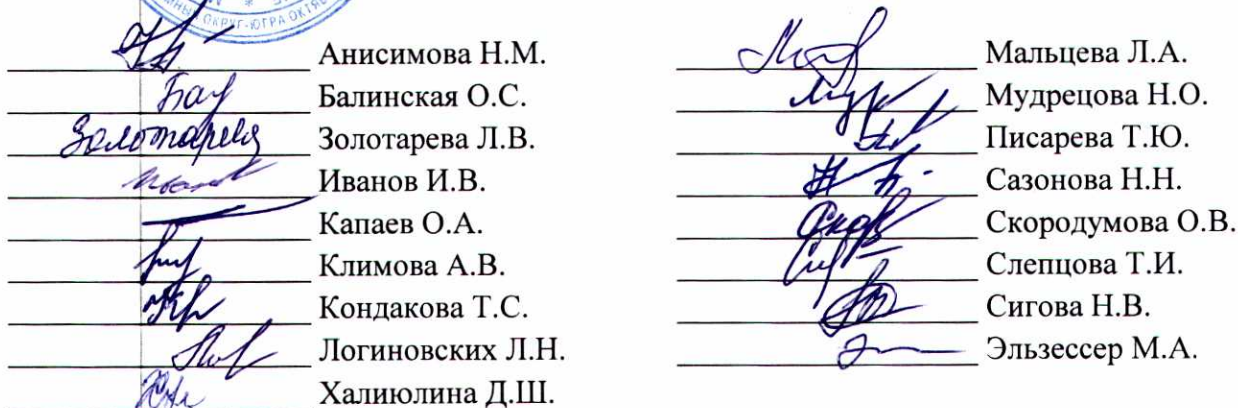 ОКРУГ-ЮГРА
Анисимова Н.М.
Балинская О.С.
Золотарева Золотарева Л.В.
Иванов Иванов И.В.
Капаев О.А.
Климова А.В.
Кондакова Т.С.
Логиновских Л.Н.
Халиюлина Д.Ш.
Мальцева Л.А.
Мудрецова Н.О.
Писарева Т.Ю.
Сазонова Н.Н.
Скородумова О.В.
Слепцова Т.И.
Сигова Н.В.
Эльзессер М.А.